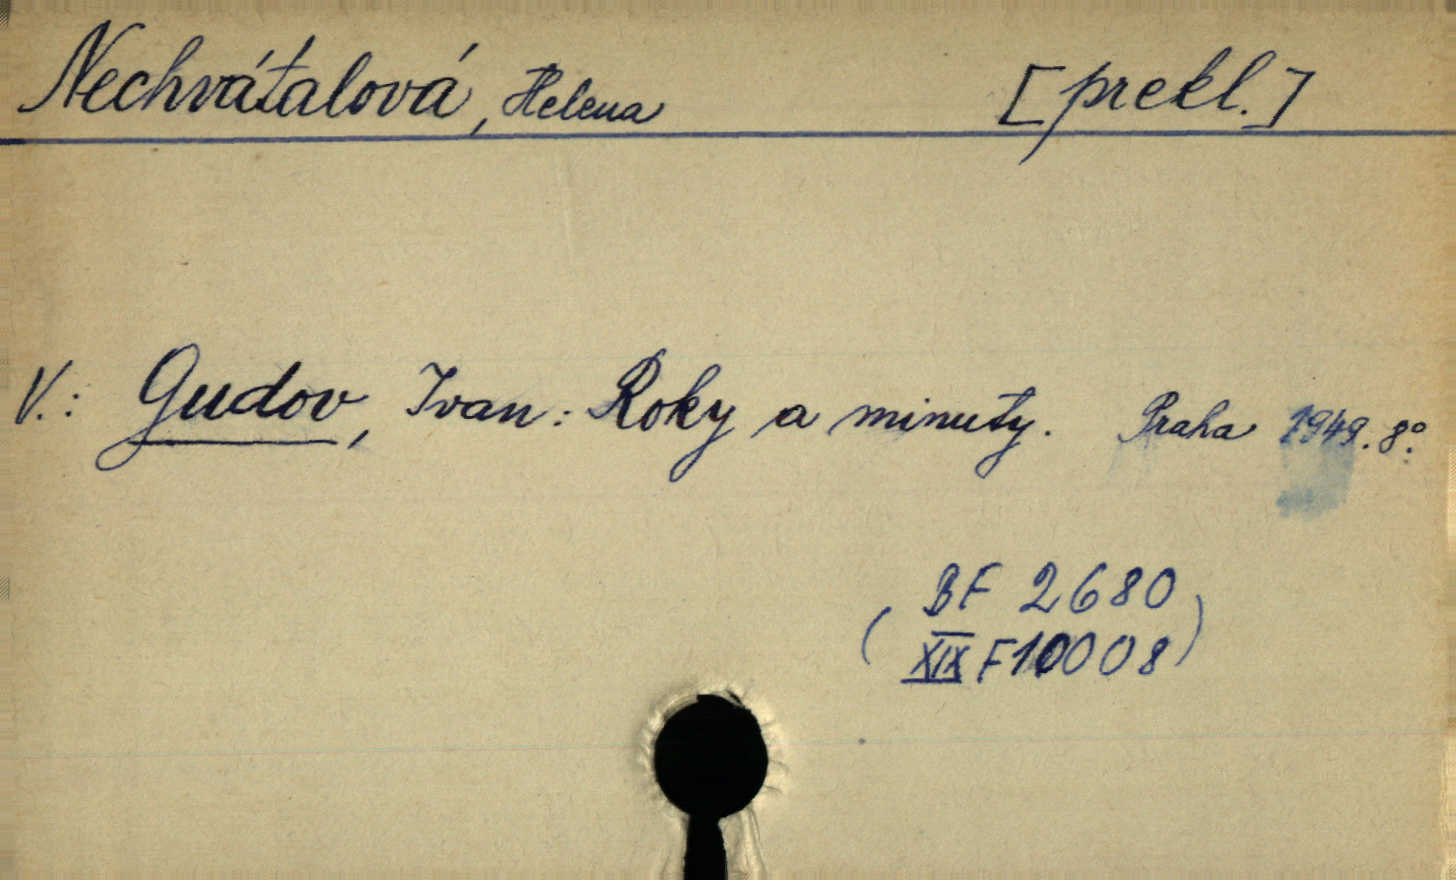 Nechvátalová, Helena [prekl.]
V.: Gudov, Ivan: Roky a minuty. Praha 1949. 8°.
( BF 2680
XIX F10008 )